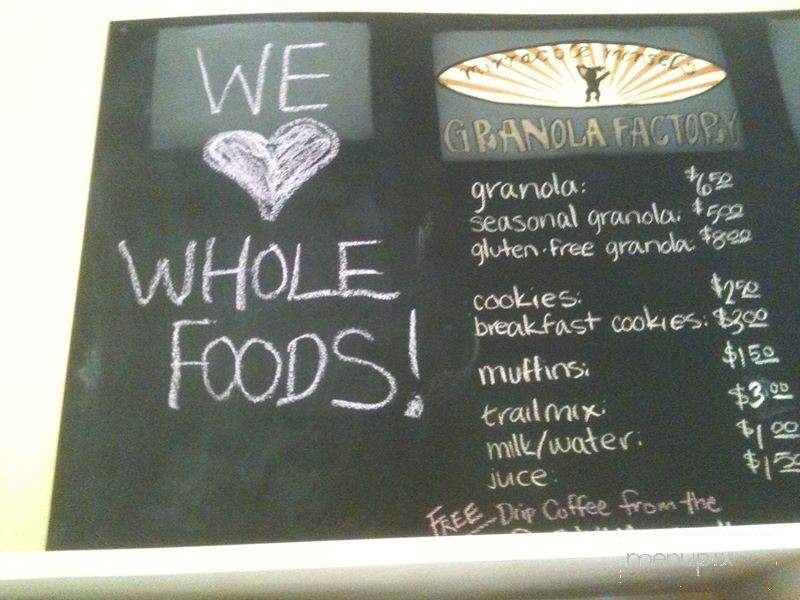 WE
WHOLE
FOODS!
GRANOLA FACTORY
granola: $6.50
seasonal granola: $5.00
gluten-free granola: $8.00
cookies: $2.50
breakfast cookies: $3.00
muffins: $1.50
trail mix: $3.00
milk/water: $1.00
juce: $1.50
FREE - Drip Coffee from the
menupix